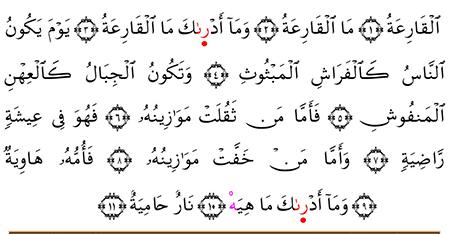 ٱلۡقَارِعَةُ ﴿١﴾ مَا ٱلۡقَارِعَةُ ﴿٢﴾ وَمَآ أَدۡرَىٰكَ مَا ٱلۡقَارِعَةُ ﴿٣﴾ يَوۡمَ يَكُونُ
ٱلنَّاسُ كَٱلۡفَرَاشِ ٱلۡمَبۡثُوثِ ﴿٤﴾ وَتَكُونُ ٱلۡجِبَالُ كَٱلۡعِهۡنِ
ٱلۡمَنفُوشِ ﴿٥﴾ فَأَمَّا مَن ثَقُلَتۡ مَوَٰزِينُهُۥ ﴿٦﴾ فَهُوَ فِى عِيشَةٖ
رَّاضِيَةٖ ﴿٧﴾ وَأَمَّا مَنۡ خَفَّتۡ مَوَٰزِينُهُۥ ﴿٨﴾ فَأُمُّهُۥ هَاوِيَةٞ
﴿٩﴾ وَمَآ أَدۡرَىٰكَ مَا هِيَهۡ ﴿١٠﴾ نَارٌ حَامِيَةُۢ ﴿١١﴾